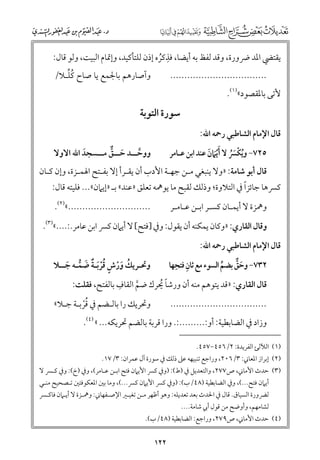 تَعْدِيلَاتُ بَعْضِ شُرَّاحِ الشَّاطِبِيَّةِ
د. عبد القيوم بن عبد الغفور السندي
يقتضي المد ضرورة، وقد لفظ به أيضا، فذِكرُه إذن للتأكيد، وإتمام البيت، ولو قال:
................................ وآصارهم بالجمع يا صاح كُـلِّـلا/
لأتى بالمقصود»(١).
سورة التوبة
قال الإمام الشاطبي رحمه الله:
٧٢٥- وَيُكْسَرُ لا أَيْمَانَ عند ابن عامر ووحَّـد حَـقٌّ مسـجدَ اللهَ الاولا
قال أبو شامة: «ولا ينبغي من جهة الأدب أن يقرأ إلا بفتح الهمزة، وإن كان
كسرها جائزاً في التلاوة؛ وذلك لقبح ما يوهمه تعلق «عند» بـ«إيمان»... فليته قال:
وهمزة لا أيمان كسر ابن عامر ............................»(٢).
وقال القاري: «وكان يمكنه أن يقول: وفي [فتح] لا أيمان كسر ابن عامر.....»(٣).
قال الإمام الشاطبي رحمه الله:
٧٣٢- وحَقٌّ بضمِّ السوء مع ثانِ فتحِها وتحريكُ وَرْشٍ قُرْبَةٌ ضَمُّـه جَـلا
قال القاري: «قد يتوهم منه أن ورشاً يُحرك ضمَّ القافِ بالفتح، فقلت:
................................ وتحريك را بالضم في قُرْبة جلا»
وزاد في الضابطية: أو:.........: ورا قربة بالضم تحريكه...»(٤).
(١) اللآلئ الفريدة: ٢/ ٤٥٦-٤٥٧.
(٢) إبراز المعاني: ٣/ ٢٠٦، وراجع تنبيهه على ذلك في سورة آل عمران: ٣/ ١٧.
(٣) حدث الأماني، ص٢٧٧، والتعديل في (ط): (وفي كسر الأيمان فتح ابن عامر)، وفي (خ): وفي كسر لا
أيمان فتح...)، وفي الضابطية (٤٨/ ب): (وفي كسر الأيمان كسر...)، وما بين المعكوفتين تصحيح مني
لضرورة السياق. قال في الحدث بعد تعديله: وهو أظهر من تغيير الإصفهاني: وهمزة لا أيمان فاكسر
لشامهم، وأوضح من قول أبي شامة....
(٤) حدث الأماني، ص٢٧٩، وراجع: الضابطية (٤٨/ ب).
١٢٢